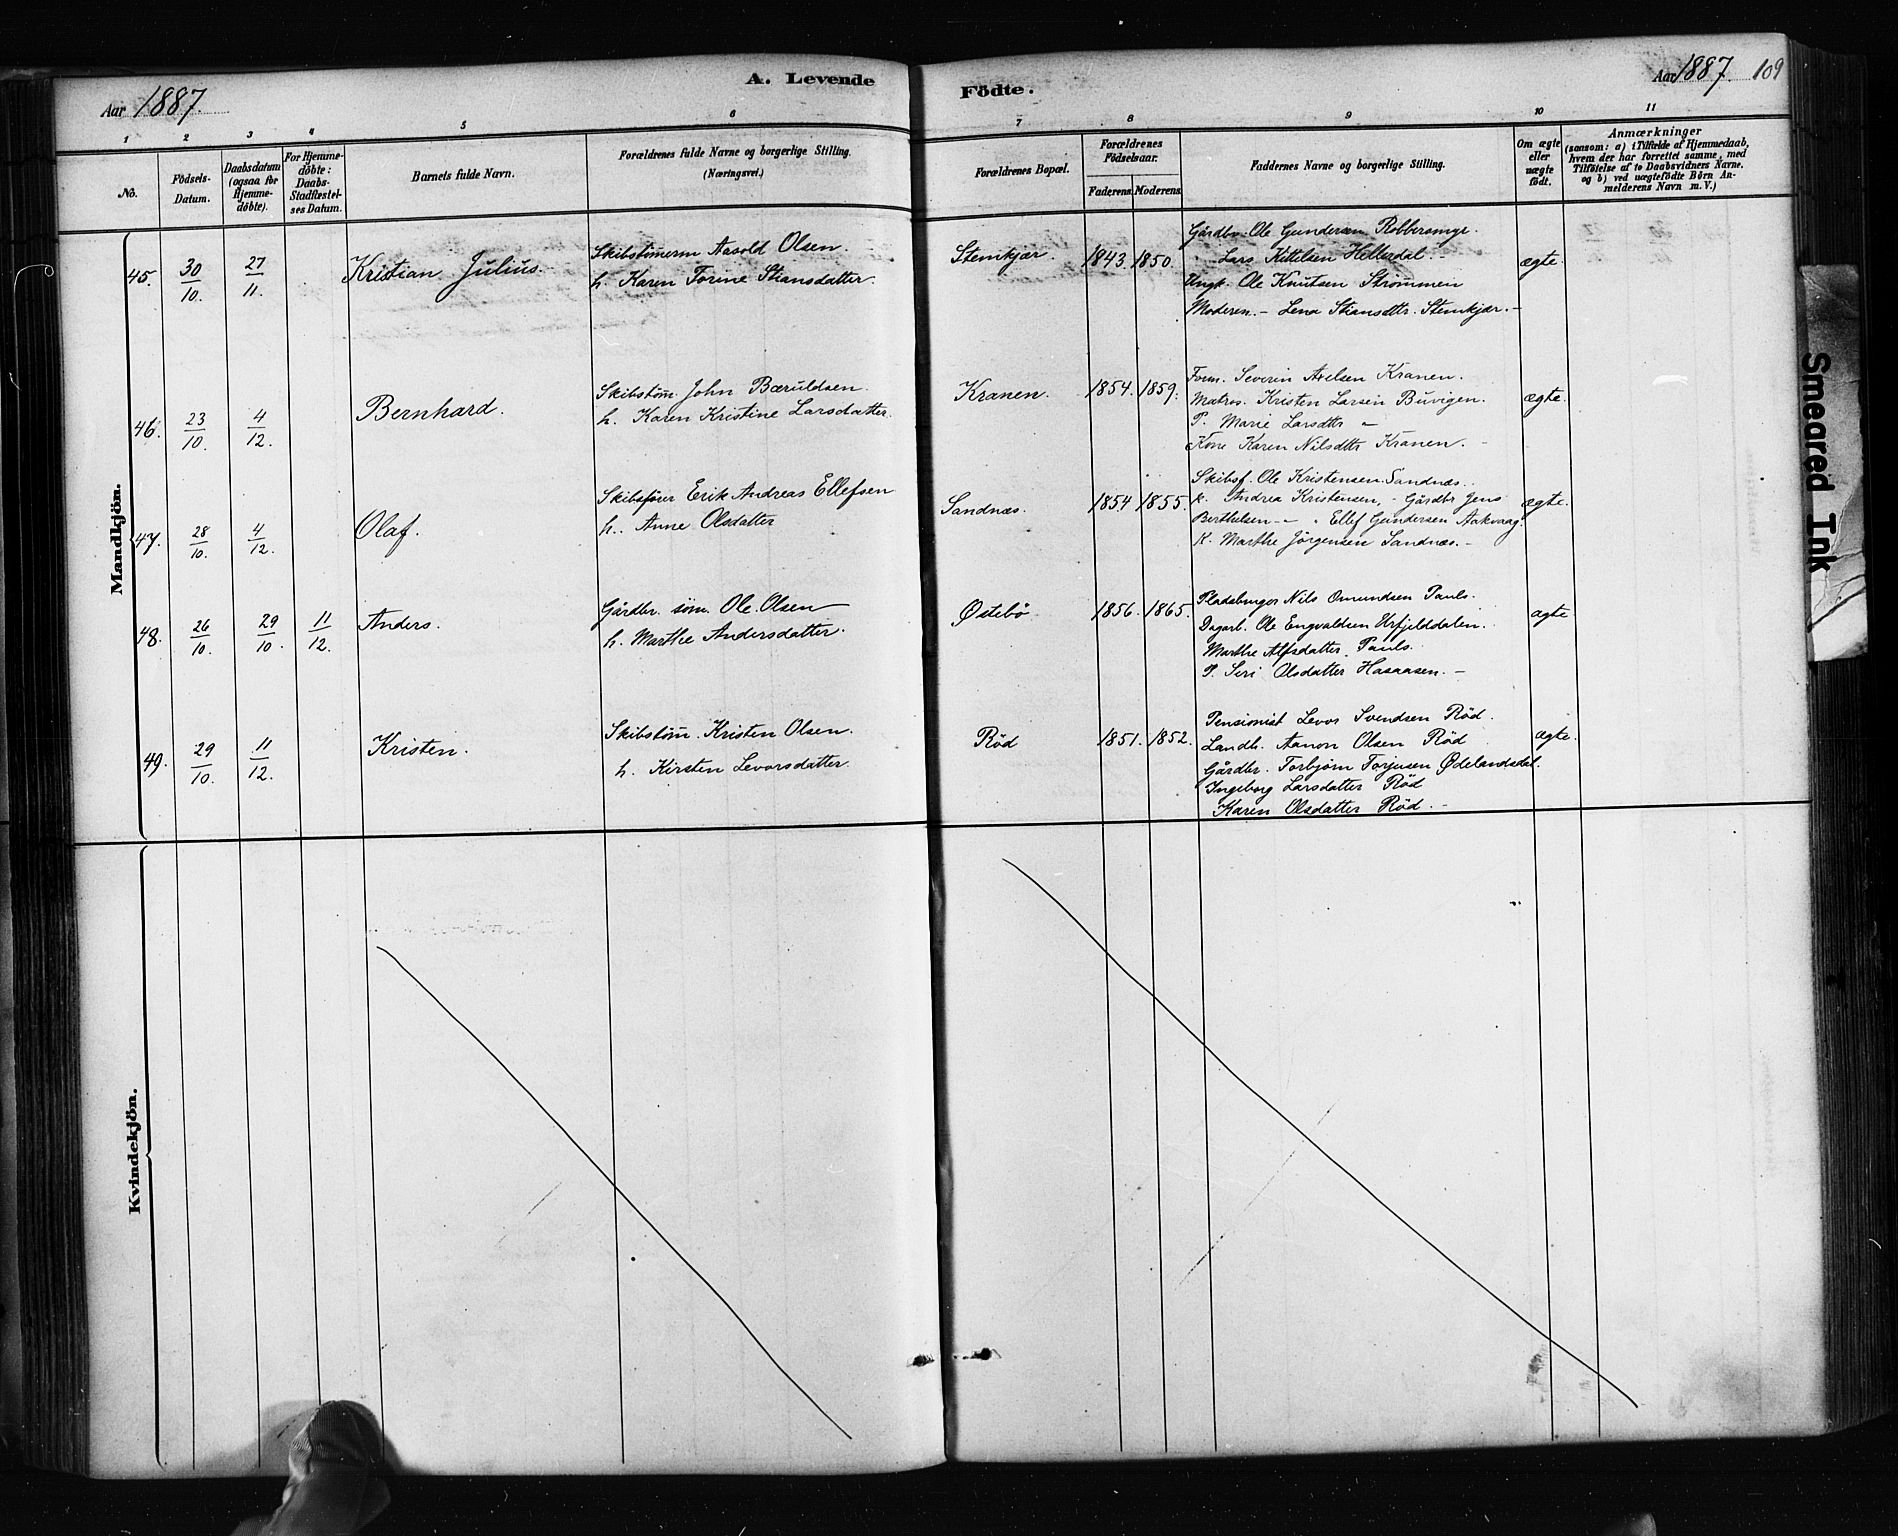 Aar 1887.
A. Levende
Födte.
Aar 1887. 109
1 2 3 4 5 6 7 8 9 10 11
No.
Födsels-
Datum.
Daabsdatum
(ogsaa for
Hjemme-
döbte).
For Hjemme-
döbte:
Daabs-
Stadfæstel-
ses Datum.
Barnets fulde Navn.
Forældrenes fulde Navne og borgerlige Stilling.
(Næringsvei.)
Forældrenes Bopæl.
Forældrenes
Födselsaar.
Faderens. Moderens.
Faddernes Navne og borgerlige Stilling.
Om ægte
eller
uægte
födt.
Anmærkninger
(saasom: a) i Tilfælde af Hjemmedaab,
hvem der har forrettet samme, med
Tilföielse af to Daabsvidners Navne.
og b) ved uægtefödte Börn An-
melderens Navn m. V.)
Mandkjön.
45. 30/10. 27/11. Kristian Julius
Skibstömerm Aasold Olsen.
h. Karen Torine Stiansdatter.
Stemkjær. 1843. 1850.
Gårdbr. Ole Gundersen Robbersmyr.
" Lars Kittelsen Hellesdal. -
Ungk. Ole Knutsen Strömmen
Moderen. - Lena Stiansdtr. Stemkjær. -
ægte.
46. 23/10. 4/12. Bernhard.
Skibstöm. John Bæruldsen.
h. Karen Kristine Larsdatter.
Kranen. 1854. 1859.
Form. Severin Axelsen Kranen.
Matros. Kristen Larsen Buvigen.
P. Marie Larsdtr "
Kone Karen Nilsdtr Kranen. -
ægte.
47. 28/10. 4/12. Olaf.
Skibsförer Erik Andreas Ellefsen
h. Anne Olsdatter
Sandnæs. 1854 1855.
Skibsf. Ole Kristensen Sandnæs.
K. Andrea Kristensen, - Gårdbr Jens
Berthelsen - " " Ellef Gundersen Aakvaag
K. Marthe Jörgensen Sandnæs. -
ægte.
48. 26/10. 29/10. 11/12. Anders.
Gårdbr. söm. Ole Olsen
h. Marthe Andersdatter.
Østebö 1856. 1865.
Pladsbruger Nils Omundsen Pauls.
Dagarb. Ole Engvaldsen Urfjelddalen.
Marthe Alfsdatter Pauls.
P. Siri Olsdatter Hasaasen. -
ægte
49. 29/10. 11/12. Kristen.
Skibstöm. Kristen Olsen.
h. Kirsten Levorsdatter.
Röd 1851. 1852.
Pensionist Levor Svendsen Röd.
Landh. Aanon Olsen Röd
Gårdbr. Torbjörn Torjusen Ødelandsdal.
Ingeborg Larsdatter Röd
Karen Olsdatter Röd. -
ægte.
Kvindekjön.
Smeared Ink